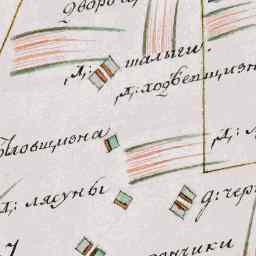 Дворо
Д: шалыги.
Д: ходвепщизн
ловщизна
Д:
Д: лясуны
д: чер
ончики